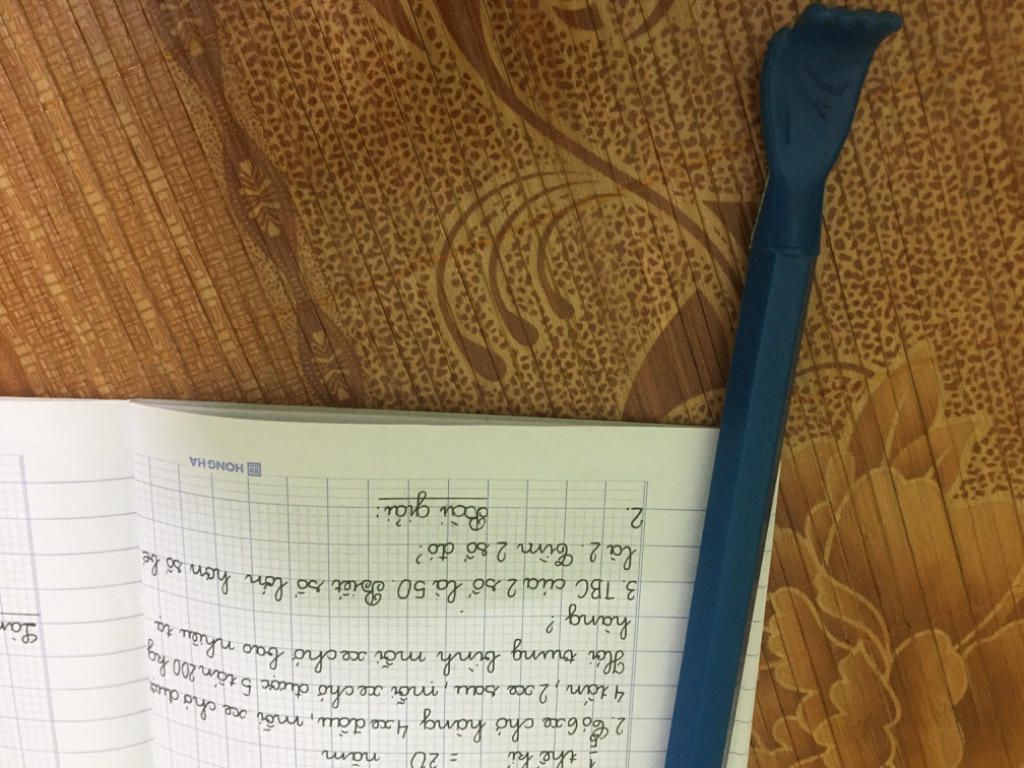 1/5 thế kỉ = 20 năm
2. Có 6 xe chở hàng 4 xe đầu, mỗi xe chở được
4 tấn, 2 xe sau, mỗi xe chở được 5 tấn 200 kg
Hỏi trung bình mỗi xe chở bao nhiêu tạ
hàng?
3. TBC của 2 số là 50 Biết số lớn hơn số bé
là 2. Tìm 2 số đó?
2. Bài giải:
HONG HA